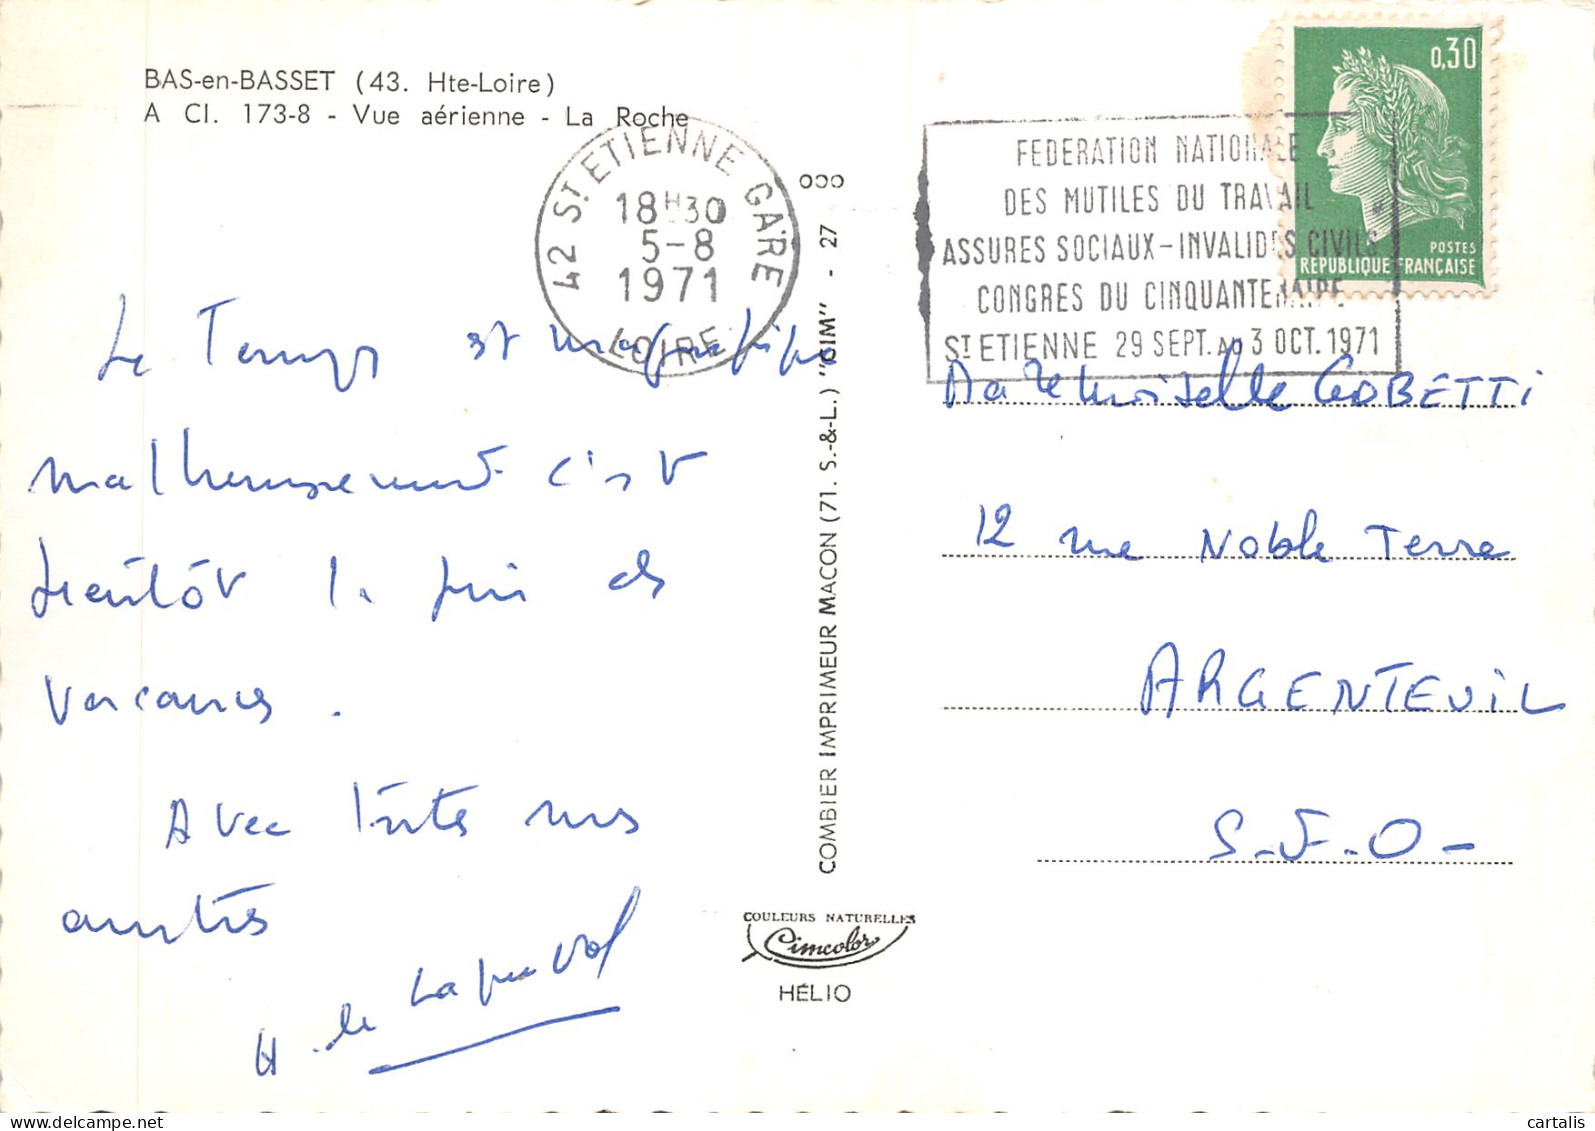 BAS-en-BASSET (43. Hte-Loire)
A Cl. 173-8 - Vue aérienne - La Roche
42 ST ETIENNE GARE
18H30
5-8
1971
LOIRE
FEDERATION NATIONALE
DES MUTILES DU TRAVAIL
ASSURES SOCIAUX-INVALIDES CIVILS
CONGRES DU CINQUANTENAIRE
ST ETIENNE 29 SEPT. AU 3 OCT. 1971
0,30
POSTES
REPUBLIQUE FRANÇAISE
Le Temps est magnifique
malheureusement c'est
bientôt la fin des
vacances.
Avec toutes nos
amitiés
COMBIER IMPRIMEUR MACON (71. S.-&-L.) "CIM" - 27
COULEURS NATURELLES
Cimcolor
HÉLIO
Mademoiselle GOBETTI
12 rue Noble Terre
ARGENTEUIL
S.-&.-O-
cartalis